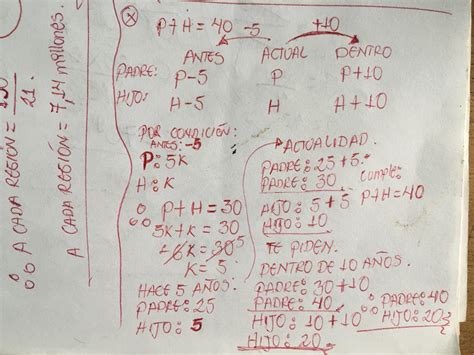 150
A CADA REGIÓN = 21.
A CADA REGIÓN = 7,14 millones.
P+H = 40 -5 +10
ANTES ACTUAL DENTRO
PADRE: P-5 P P+10
HIJO: H-5 H H+10
POR CONDICIÓN:
ANTES: -5
P: 5K
H: K
P+H = 30
5K+K = 30
6K = 30 5
K = 5
HACE 5 AÑOS:
PADRE: 25
HIJO: 5
ACTUALIDAD.
PADRE: 25+5.
PADRE: 30 cumple:
HIJO: 5+5 P+H=40
HIJO: 10
TE PIDEN.
DENTRO DE 10 AÑOS.
PADRE: 30+10
PADRE: 40 PADRE: 40
HIJO: 10+10 HIJO: 20
HIJO: 20